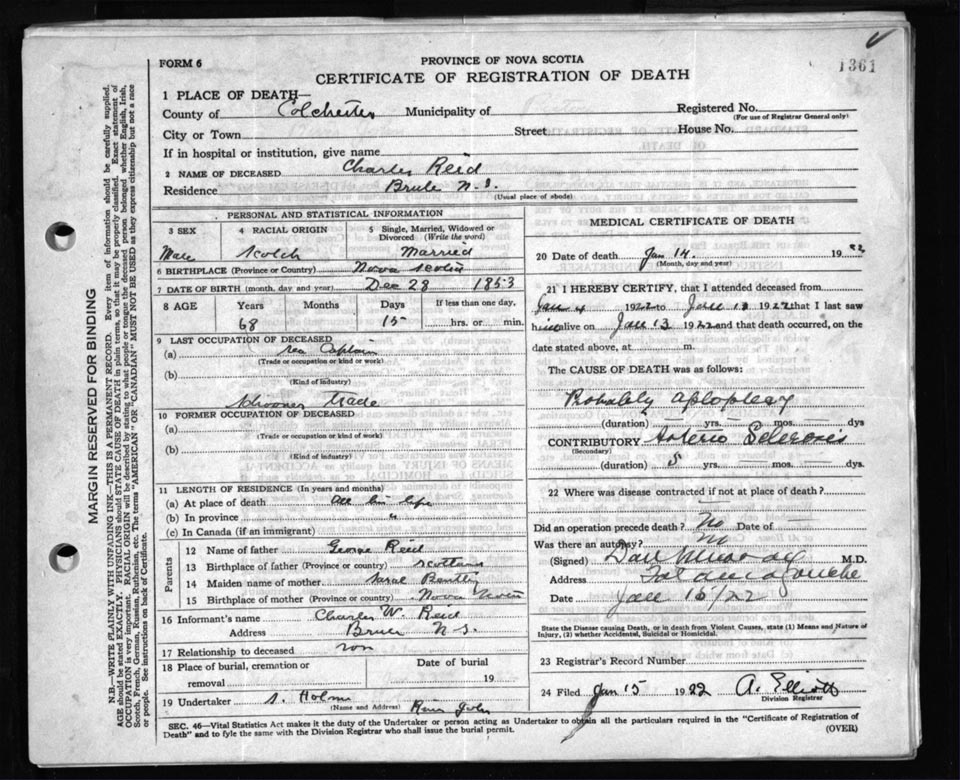 FORM 6
PROVINCE OF NOVA SCOTIA
CERTIFICATE OF REGISTRATION OF DEATH
1361
1 PLACE OF DEATH—
County of Colchester Municipality of Registered No.
(For use of Registrar General only)
City or Town Street House No.
If in hospital or institution, give name
2 NAME OF DECEASED Charles Reid
Residence Brule N.S.
(Usual place of abode)
PERSONAL AND STATISTICAL INFORMATION
3 SEX 4 RACIAL ORIGIN 5 Single, Married, Widowed or Divorced (Write the word)
Male Scotch Married
6 BIRTHPLACE (Province or Country) Nova Scotia
7 DATE OF BIRTH (month, day and year) Dec 28 1853
8 AGE Years Months Days If less than one day,
68 15 hrs. or min.
9 LAST OCCUPATION OF DECEASED
(a) Sea Captain
(Trade or occupation or kind of work)
(b)
(Kind of industry)
Schooner trade
10 FORMER OCCUPATION OF DECEASED
(a)
(Trade or occupation or kind of work)
(b)
(Kind of industry)
11 LENGTH OF RESIDENCE (In years and months)
(a) At place of death all his life
(b) In province "
(c) In Canada (if an immigrant)
Parents
12 Name of father George Reid
13 Birthplace of father (Province or country) Scotland
14 Maiden name of mother Sarah Bently
15 Birthplace of mother (Province or country) Nova Scotia
16 Informant's name Charles W. Reid
Address Brule N S.
17 Relationship to deceased son
18 Place of burial, cremation or removal Date of burial 19
19 Undertaker Holm
(Name and Address) River John
MEDICAL CERTIFICATE OF DEATH
20 Date of death Jan 14. 1922
(Month, day and year)
21 I HEREBY CERTIFY, that I attended deceased from
Jan 1922 to Jan 13 1922 that I last saw
him alive on Jan 13 1922 and that death occurred, on the
date stated above, at m.
The CAUSE OF DEATH was as follows:
Probably Aploplexy
(duration) yrs. mos. dys
CONTRIBUTORY Arterio Selerosis
(Secondary)
(duration) 5 yrs. mos. dys.
22 Where was disease contracted if not at place of death?
Did an operation precede death? No Date of —
Was there an autopsy? No
(Signed) Dan Murray M.D.
Address Tatamagouche
Date Jan 15/22
State the Disease causing Death, or in death from Violent Causes, state (1) Means and Nature of
Injury, (2) whether Accidental, Suicidal or Homicidal.
23 Registrar's Record Number
24 Filed Jan 15 1922 A. Elliott
Division Registrar
SEC. 46—Vital Statistics Act makes it the duty of the Undertaker or person acting as Undertaker to obtain all the particulars required in the "Certificate of Registration of
Death" and to fyle the same with the Division Registrar who shall issue the burial permit. (OVER)
MARGIN RESERVED FOR BINDING
N.B.—WRITE PLAINLY WITH UNFADING INK—THIS IS A PERMANENT RECORD. Every item of information should be carefully supplied.
AGE should be stated EXACTLY. PHYSICIANS should STATE CAUSE OF DEATH in plain terms, so that it may be properly classified. Exact statement of
OCCUPATION is very important. RACIAL ORIGIN will be described by stating to what people or tongue the deceased person belonged whether English, Irish,
Scotch, French, German, Russian, Ruthenian, etc. The terms "AMERICAN" OR "CANADIAN" MUST NOT BE USED as they express citizenship but not a race
or people. See instructions on back of Certificate.